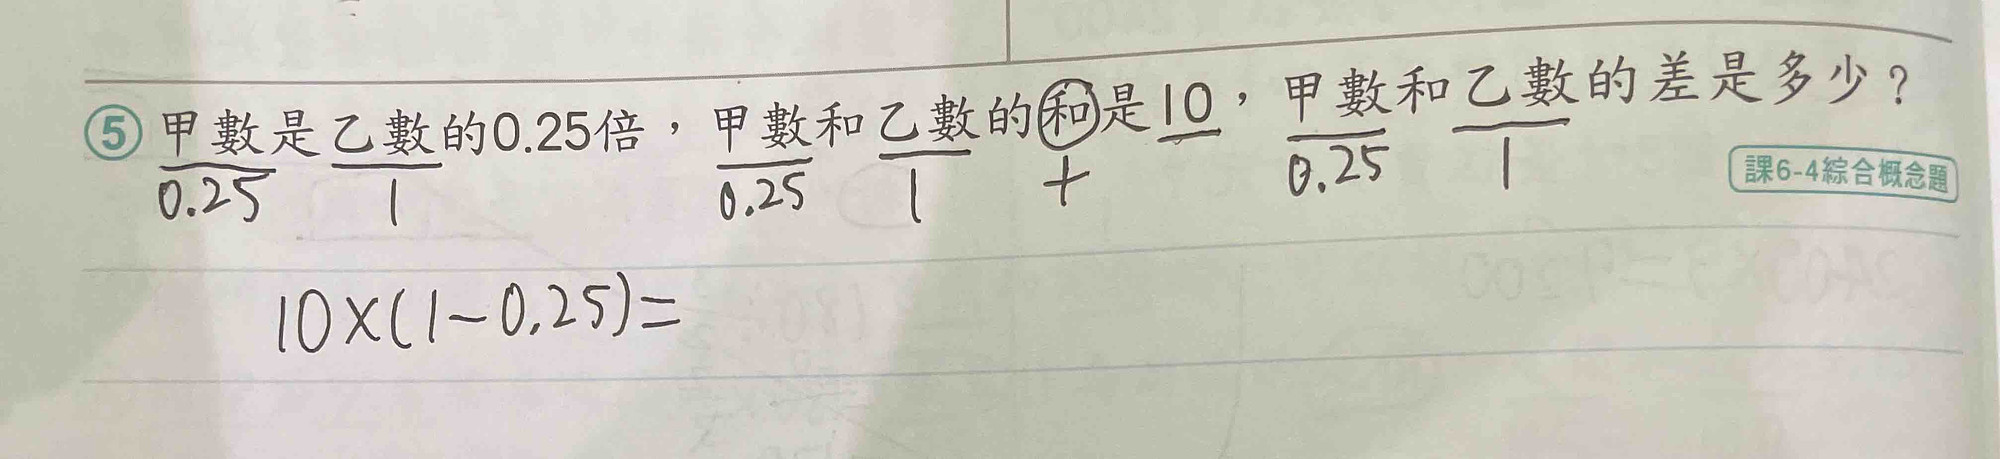 ⑤甲數是乙數的0.25倍,甲數和乙數的和是10,甲數和乙數的差是多少?
0.25 1 0.25 1 + 0.25 1
課6-4綜合概念題
10×(1-0.25)=